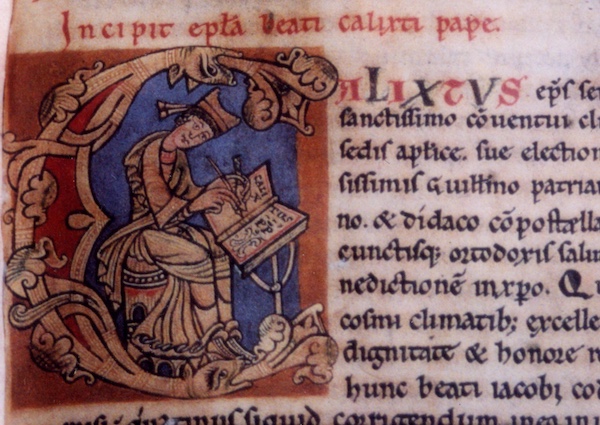 Incipit epl̃a beati calixti pape.
CALIXTUS ep̃s ser
sanctissimo cõventui cl
sedis aplĩce. sue election
sissimis Guillmõ patriar
no. & didaco cõpostella
cunctisq; ortodoxis salu
nedictionẽ in xp̃o. Qu
cosmi climatib; excelle
dignitate & honore
hunc beati iacobi cod
siquid corrigendum